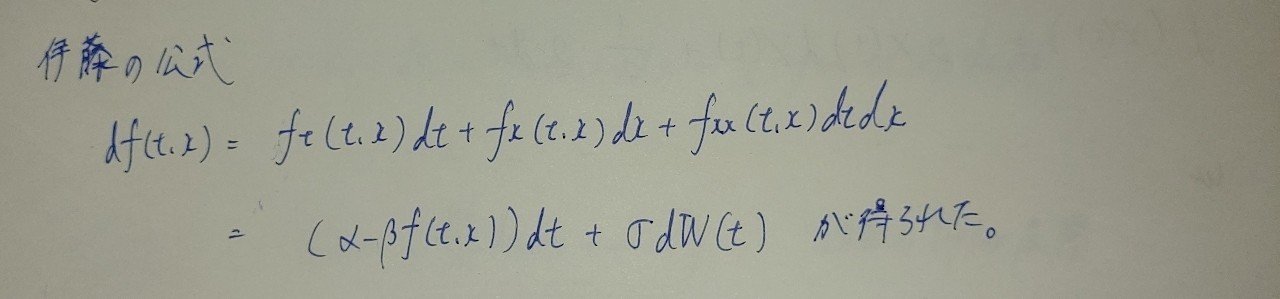 伊藤の公式
df(t,x) = ft(t,x)dt + fx(t,x)dx + fxx(t,x)dtdx
= (α-βf(t,x))dt + σdW(t) が得られた。